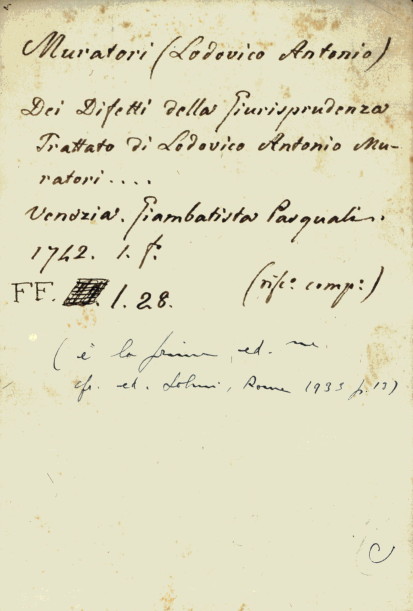 Muratori (Lodovico Antonio)
Dei Difetti della Giurisprudenza
Trattato di Lodovico Antonio Mu-
ratori....
Venezia. Giambatista Pasquali.
1742. 1. f.
(risc.º comp.º)
FF. 1. 28.
(è la prima ed.
cfr. ed. Solmi, Roma 1933 p. 13)
C